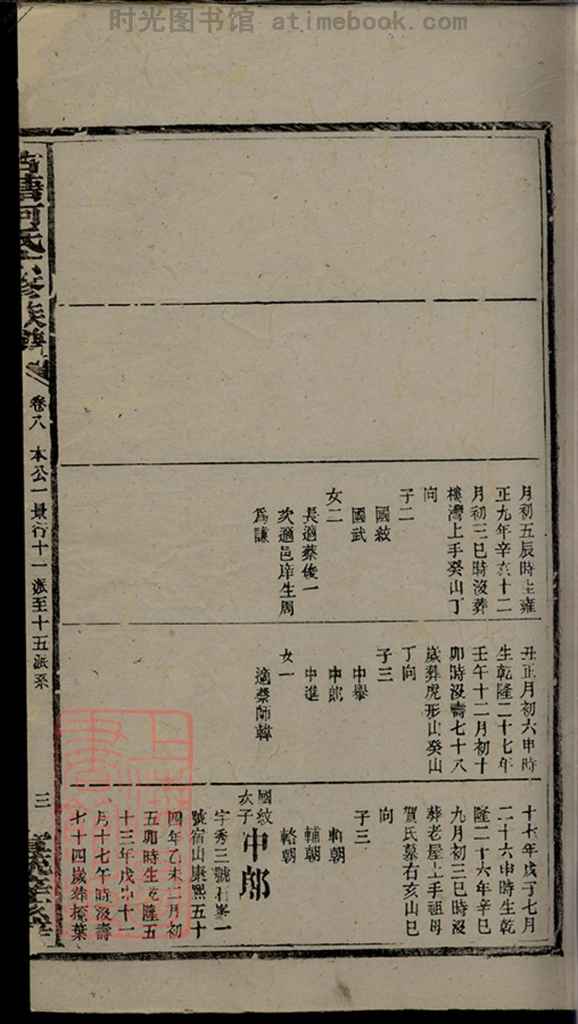 时光图书馆 atimebook.com
月初五辰時生雍
正九年辛亥十二
月初三巳時沒葬
樓灣上手癸山丁
向
子二
國敘
國武
女二
長適蔡俊一
次適邑庠生周
為謙
丑正月初六申時
生乾隆二十七年
壬午十二月初十
卯時沒壽七十八
歲葬虎形山癸山
丁向
子三
中舉
中郎
中進
女一
適蔡師韓
十七年戊子七月
二十六申時生乾
隆二十六年辛巳
九月初三巳時沒
葬老屋上手祖母
賀氏墓右亥山巳
向
子三
軏朝
輔朝
輅朝
國敘
次子
中郎
字秀三號
號宿山康熙五十
四年乙未二月初
五卯時生乾隆五
十三年戊申十一
月十七午時沒壽
七十四歲葬 葉
何氏 修族譜
卷八
本公一景行十一派至十五派系
三